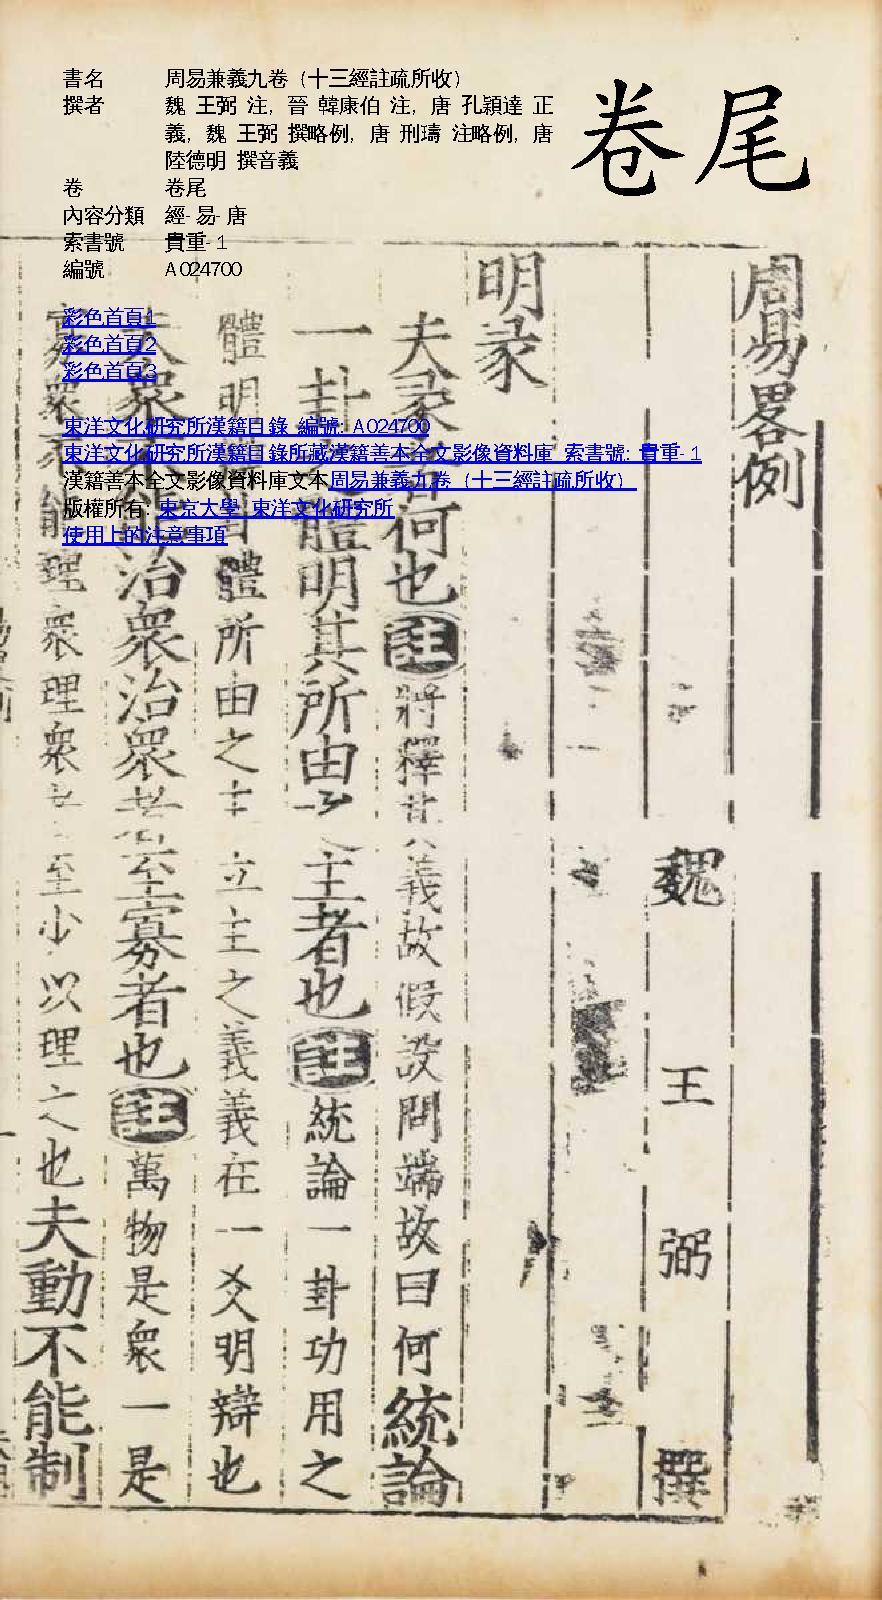 卷尾
書名 周易兼義九卷（十三經註疏所收）
撰者 魏 王弼 注，晉 韓康伯 注，唐 孔穎達 正
義，魏 王弼 撰略例，唐 刑璹 注略例，唐
陸德明 撰音義
卷 卷尾
內容分類 經-易-唐
索書號 貴重-1
編號 A024700
彩色首頁1
彩色首頁2
彩色首頁3
東洋文化研究所漢籍目錄 編號: A024700
東洋文化研究所漢籍目錄所藏漢籍善本全文影像資料庫 索書號: 貴重-1
漢籍善本全文影像資料庫文本周易兼義九卷（十三經註疏所收）
版權所有: 東京大學 東洋文化研究所
使用上的注意事項
周易畧例
魏 王 弼 撰
明彖
夫彖者何也註將釋其義故假設問端故曰何統論
一卦之體明其所由之主者也註統論一卦功用之
體明辯卦體體所由之主立主之義義在一爻明辯也
夫衆不能治衆治衆者至寡者也註萬物是衆一是
寡衆不能理衆理衆者至少以理之也夫動不能制